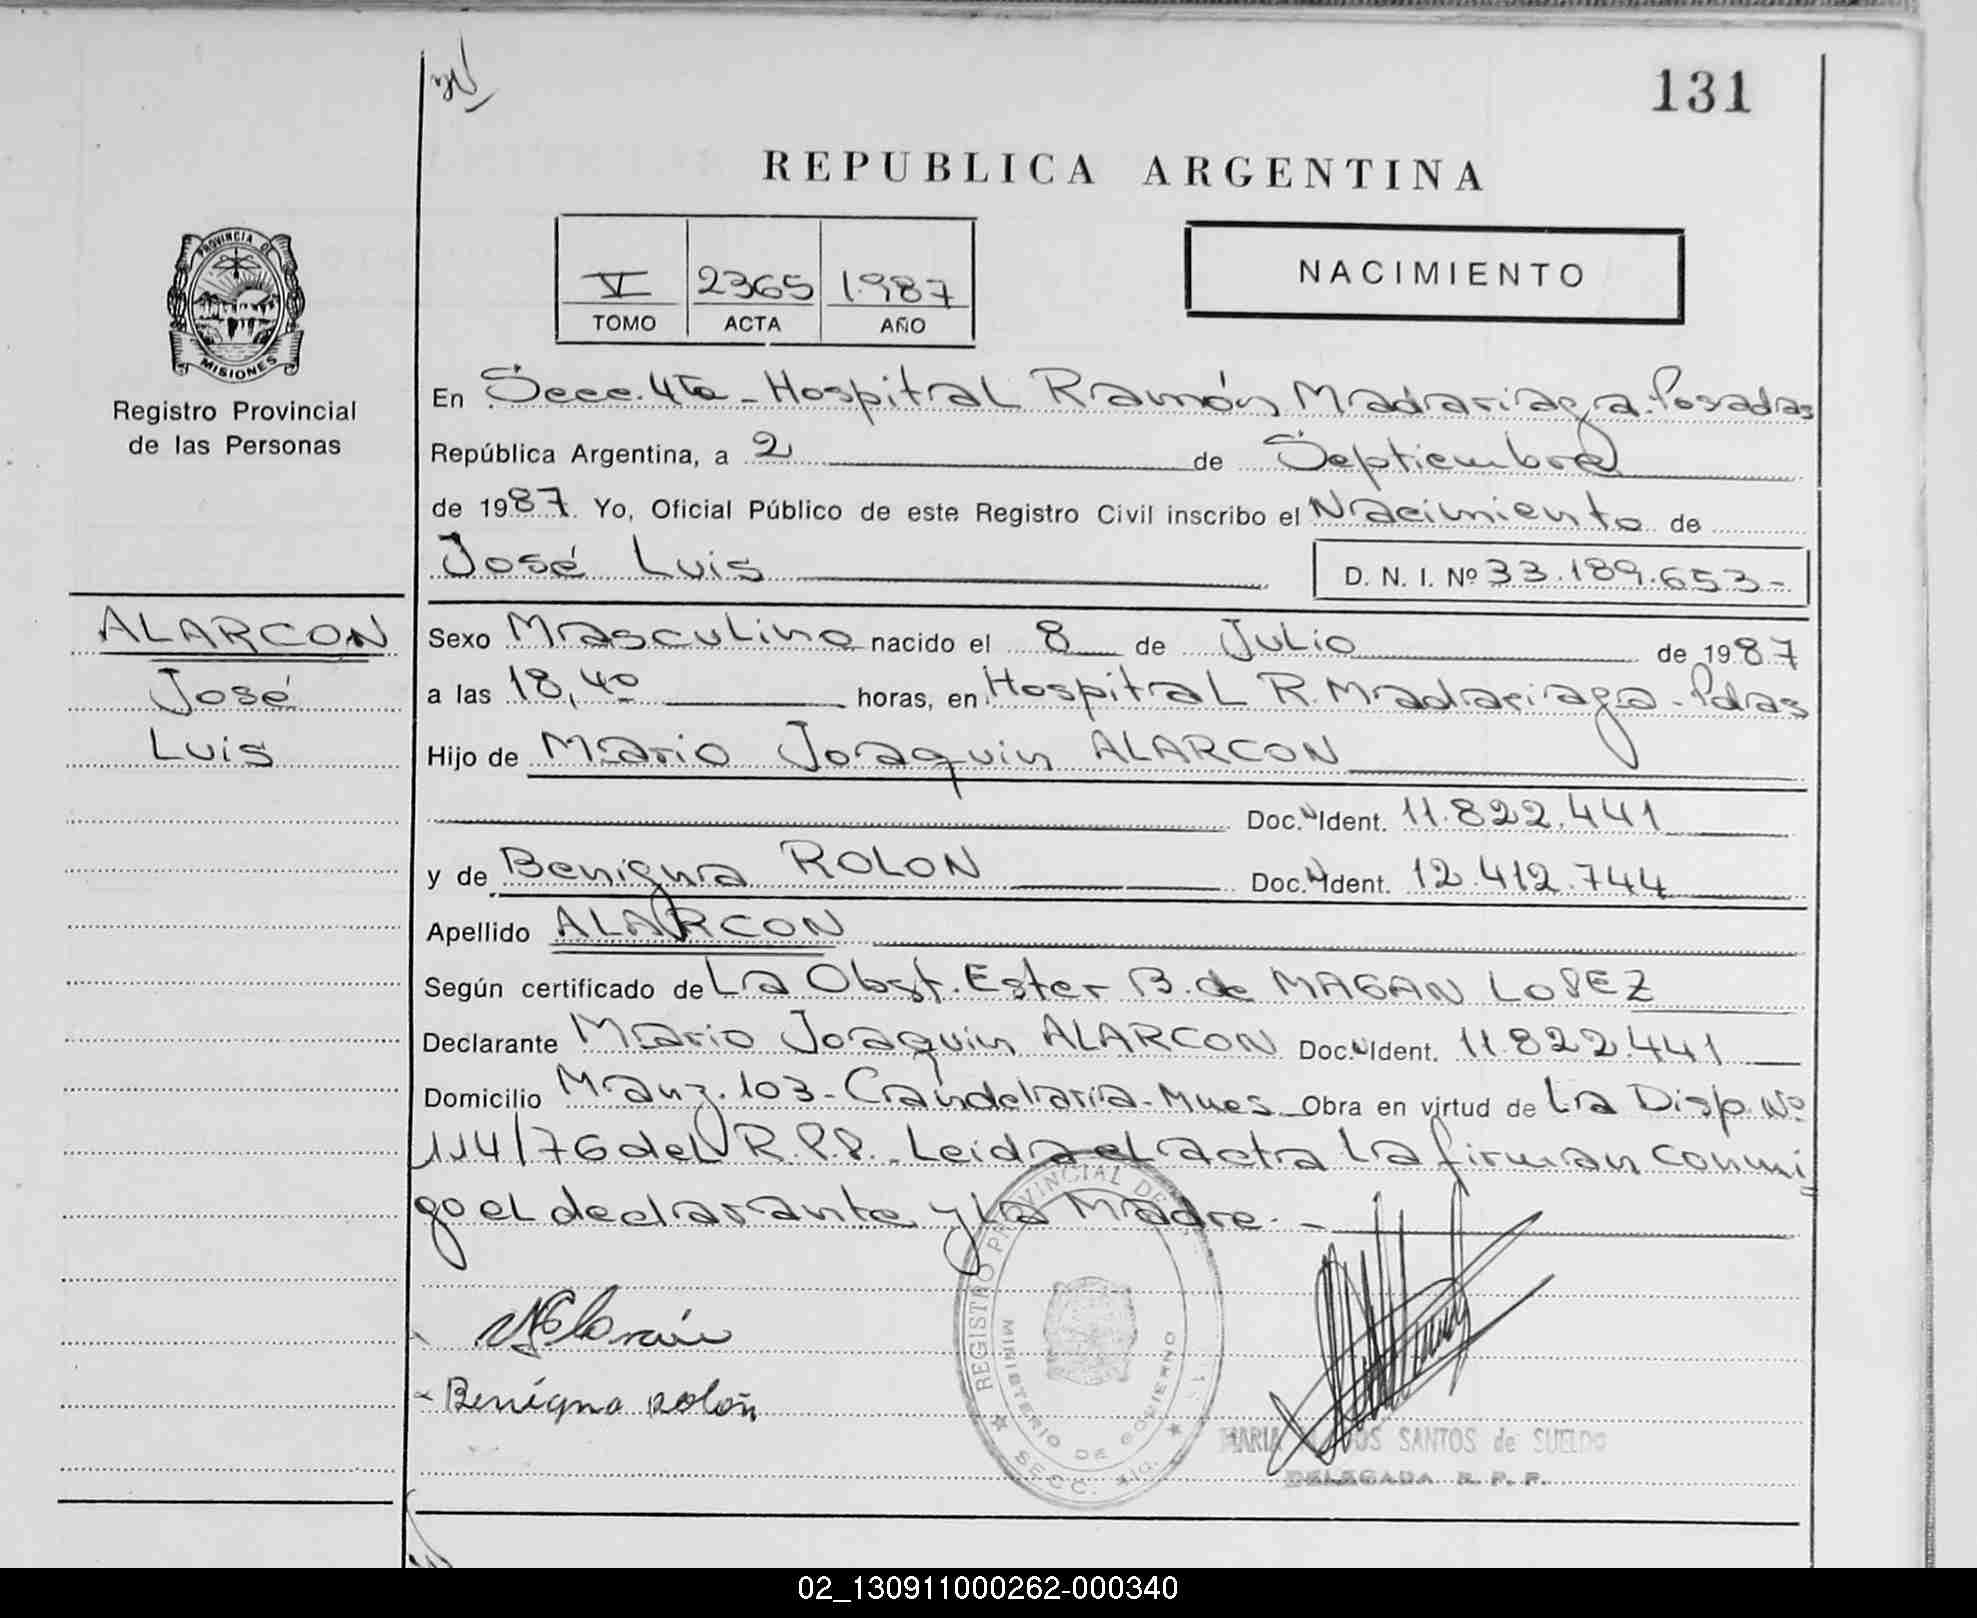 131
REPUBLICA ARGENTINA
V 2365 1.987
TOMO ACTA AÑO
NACIMIENTO
PROVINCIA DE
MISIONES
Registro Provincial
de las Personas
En Secc. 4ta - Hospital Ramón Madariaga. Posadas
República Argentina, a 2 de Septiembre
de 1987. Yo, Oficial Público de este Registro Civil inscribo el Nacimiento de
José Luis D. N. I. Nº 33.189.653-
ALARCON
José
Luis
Sexo Masculino nacido el 8 de Julio de 1987
a las 18,40 horas, en Hospital R. Madariaga - Pdas
Hijo de Mario Joaquin ALARCON
Doc. Ident. 11.822.441
y de Benigna ROLON Doc. Ident. 12.412.744
Apellido ALARCON
Según certificado de La Obst. Ester B. de MAGAN LOPEZ
Declarante Mario Joaquin ALARCON Doc. Ident. 11.822.441
Domicilio Manz. 103 - Candelaria - Mnes. Obra en virtud de La Disp. Nº
114/76 del R.P.P. - Leida el acta la firman conmi
go el declarante y la Madre. -
Benigna Rolon
REGISTRO PROVINCIAL DE
MINISTERIO DE GOBIERNO
SECC. 4ta.
MARIA DOS SANTOS de SUELDO
DELEGADA R. P. P.
02_130911000262-000340